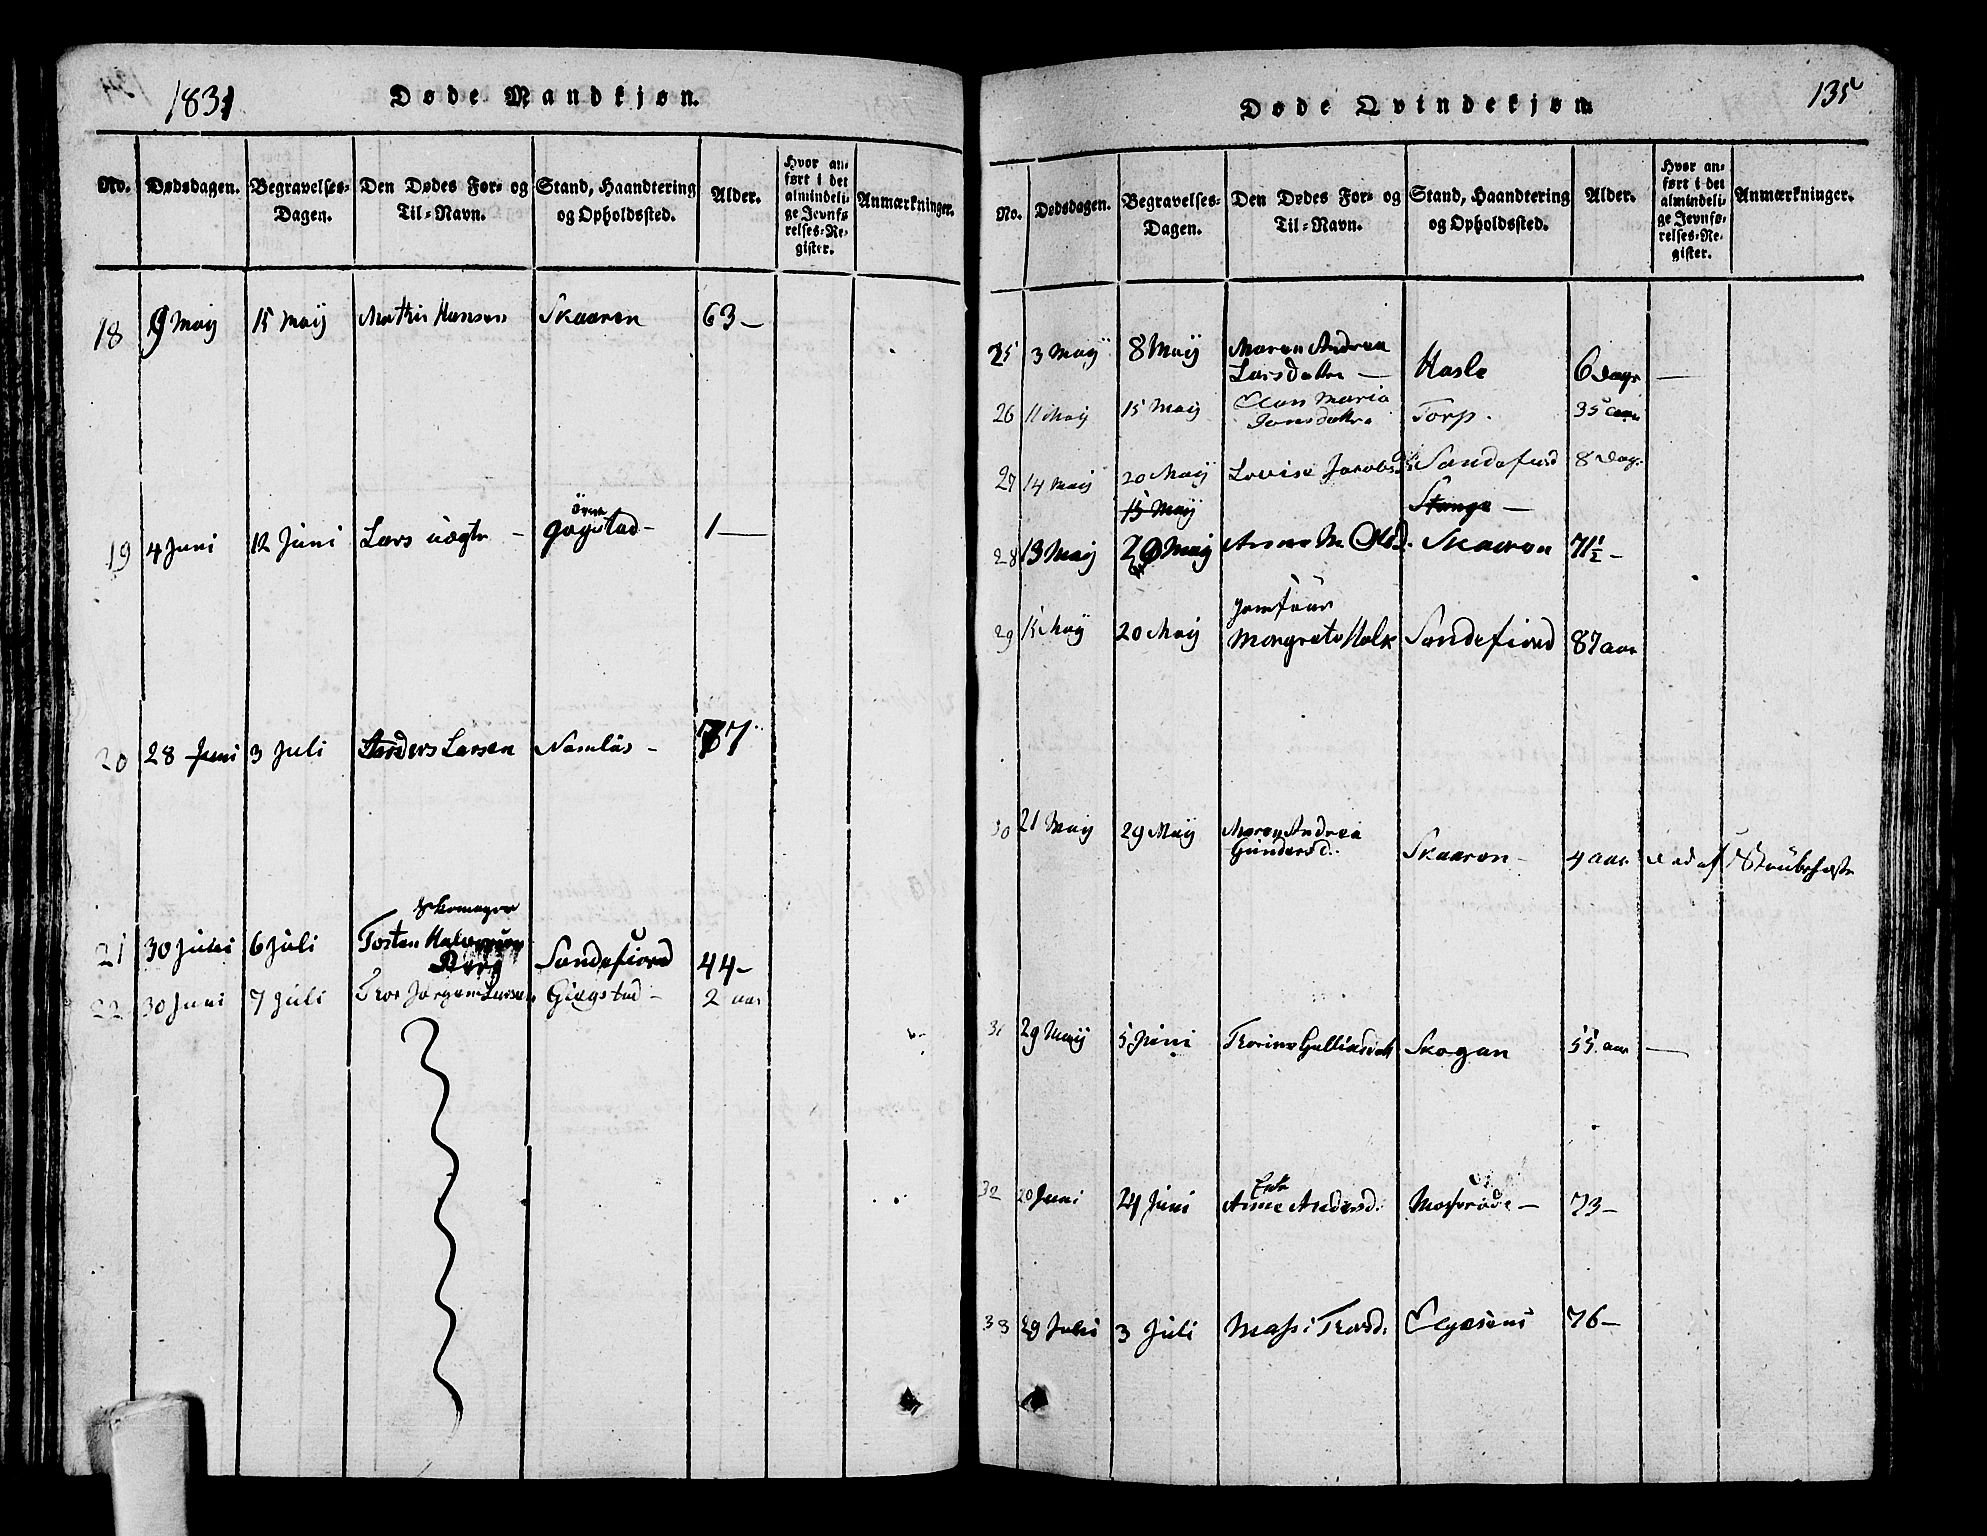 1831
Døde Mandkjøn.
No. Dødsdagen. Begravelses-Dagen. Den Dødes For- og Til-Navn. Stand, Haandtering og Opholdssted. Alder. Hvor anført i det almindelige Jevnførelses-Register. Anmærkninger.
18 9 Maij 15 Maij Mathis Hansen Skaaren 63 —
øvre
19 4 Juni 12 Juni Lars - Gogstad - 1 —
20 28 Juni 3 Juli Anders Larsen Namløs - 77
Skomager
21 30 Juni 6 Juli Tosten Halvorsen Sandefiord 44 -
Berg
22 30 Juni 7 Juli Thor Jørgen Larsen Giegstad - 2 aar
135
Døde Qvindekjøn
No. Dødsdagen. Begravelses-Dagen. Den Dødes For- og Til-Navn. Stand, Haandtering og Opholdssted. Alder. Hvor anført i det almindelige Jevnførelses-Register. Anmærkninger.
25 3 Maij 8 Maij Maren Andrea
Larsdatter — Hasle 6 Dage —
26 11 Maij 15 Maij Maria Torp. 35 aar
27 14 Maij 20 Maij Lovise Jacobsd. Sandefiord 8 Dag.
15 Maij Stange —
28 13 Maij 20 Maij Anne M. Olsd. Skaaron 71½ -
Jomfrue
29 15 Maij 20 Maij Margrete Holk Sandefiord 87 aar
30 21 Maij 29 Maij Maren Andrea
Gundersd. Skaaron - 4 aar død af Strubehoste
31 29 Maij 5 Juni Thorine Gulliksdatt Skogan 55 aar —
Enke
32 20 Juni 24 Juni Anne Andersd. Moserøde — 73 -
33 29 Juni 3 Juli Massi Thorsd. 76 —